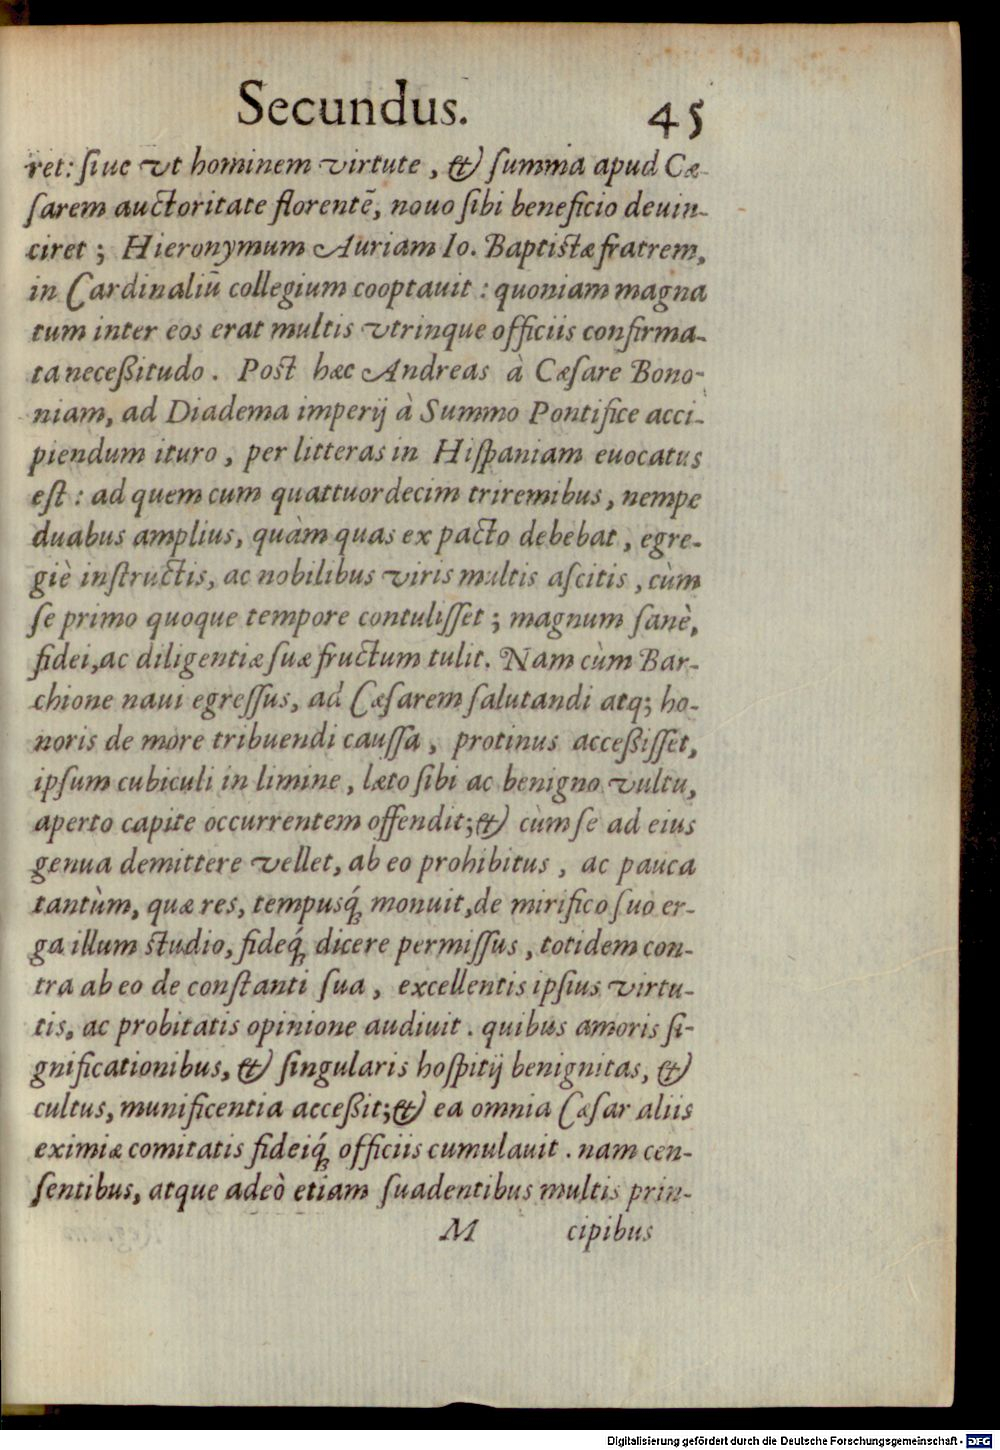 Secundus. 45
ret: ſiue vt hominem virtute, & ſumma apud Cæ-
ſarem auctoritate florentẽ, nouo ſibi beneficio deuin-
ciret; Hieronymum Auriam Io. Baptistæ fratrem,
in Cardinaliũ collegium cooptauit: quoniam magna
tum inter eos erat multis vtrinque officiis confirma-
ta neceßitudo. Post hæc Andreas à Cæſare Bono-
niam, ad Diadema imperij à Summo Pontifice acci-
piendum ituro, per litteras in Hiſpaniam euocatus
eſt: ad quem cum quattuordecim triremibus, nempe
duabus amplius, quàm quas ex pacto debebat, egre-
giè inſtructis, ac nobilibus viris multis aſcitis, cùm
ſe primo quoque tempore contuliſſet; magnum ſanè,
fidei, ac diligentiæ ſuæ fructum tulit. Nam cùm Bar-
chione naui egreſſus, ad Cæſarem ſalutandi atq; ho-
noris de more tribuendi cauſſa, protinus acceßiſſet,
ipſum cubiculi in limine, læto ſibi ac benigno vultu,
aperto capite occurrentem offendit; & cùm ſe ad eius
genua demittere vellet, ab eo prohibitus, ac pauca
tantùm, quæ res, tempusq́; monuit, de mirifico ſuo er-
ga illum studio, fideq́; dicere permiſſus, totidem con-
tra ab eo de conſtanti ſua, excellentis ipſius virtu-
tis, ac probitatis opinione audiuit. quibus amoris ſi-
gnificationibus, & ſingularis hoſpitij benignitas, &
cultus, munificentia acceßit; & ea omnia Cæſar aliis
eximiæ comitatis fideiq́; officiis cumulauit. nam cen-
ſentibus, atque adeò etiam ſuadentibus multis prin-
M cipibus
Digitalisierung gefördert durch die Deutsche Forschungsgemeinschaft - DFG